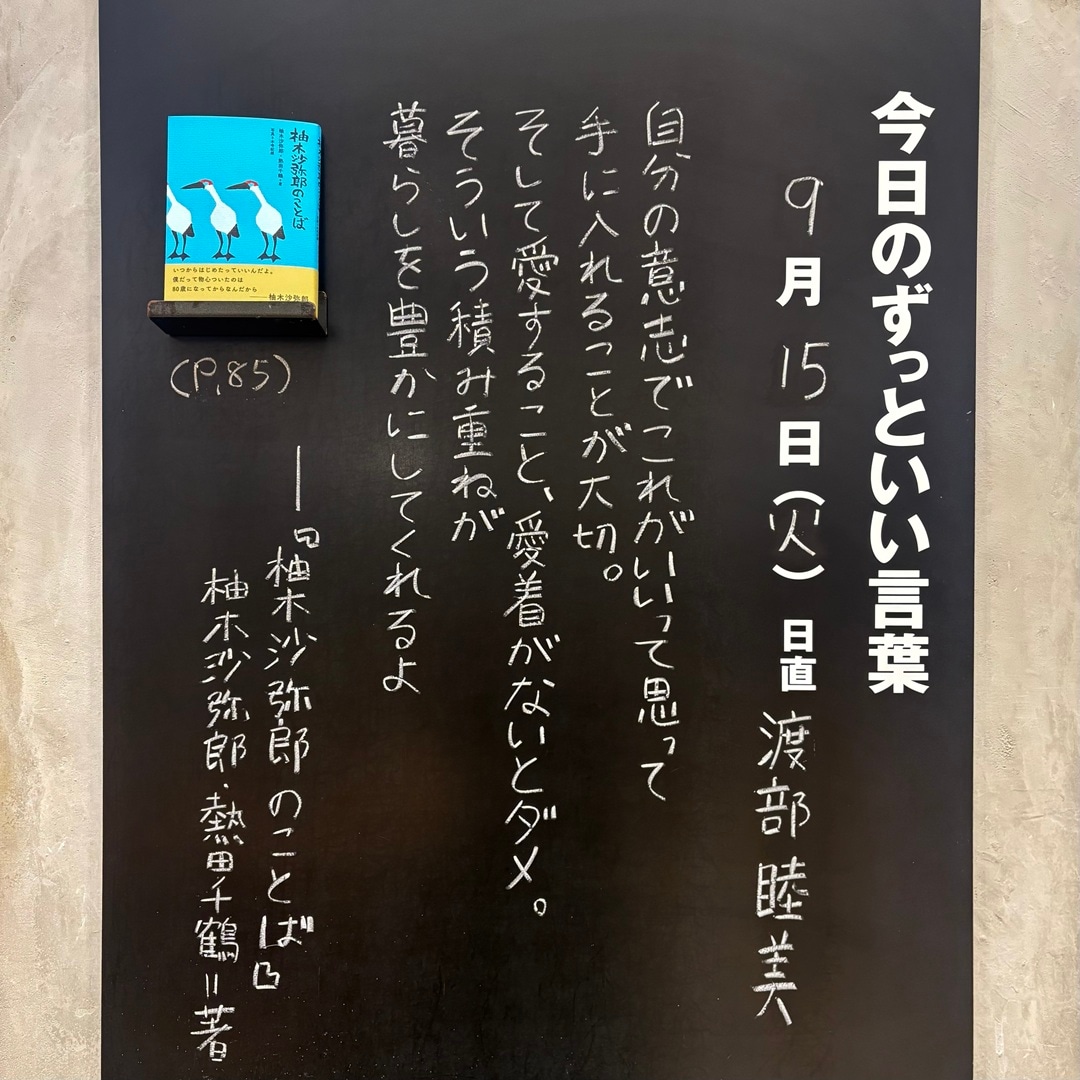 今日のずっといい言葉
9月15日(火) 日直 渡部睦美
自分の意志でこれがいいって思って
手に入れることが大切。
そして愛すること、愛着がないとダメ。
そういう積み重ねが
暮らしを豊かにしてくれるよ
―『柚木沙弥郎のことば』
柚木沙弥郎・熱田千鶴=著
(P.85)
柚木沙弥郎のことば
柚木沙弥郎・熱田千鶴・著
いつからはじめたっていいんだよ。
僕だって物心ついたのは
80歳になってからなんだから
――柚木沙弥郎